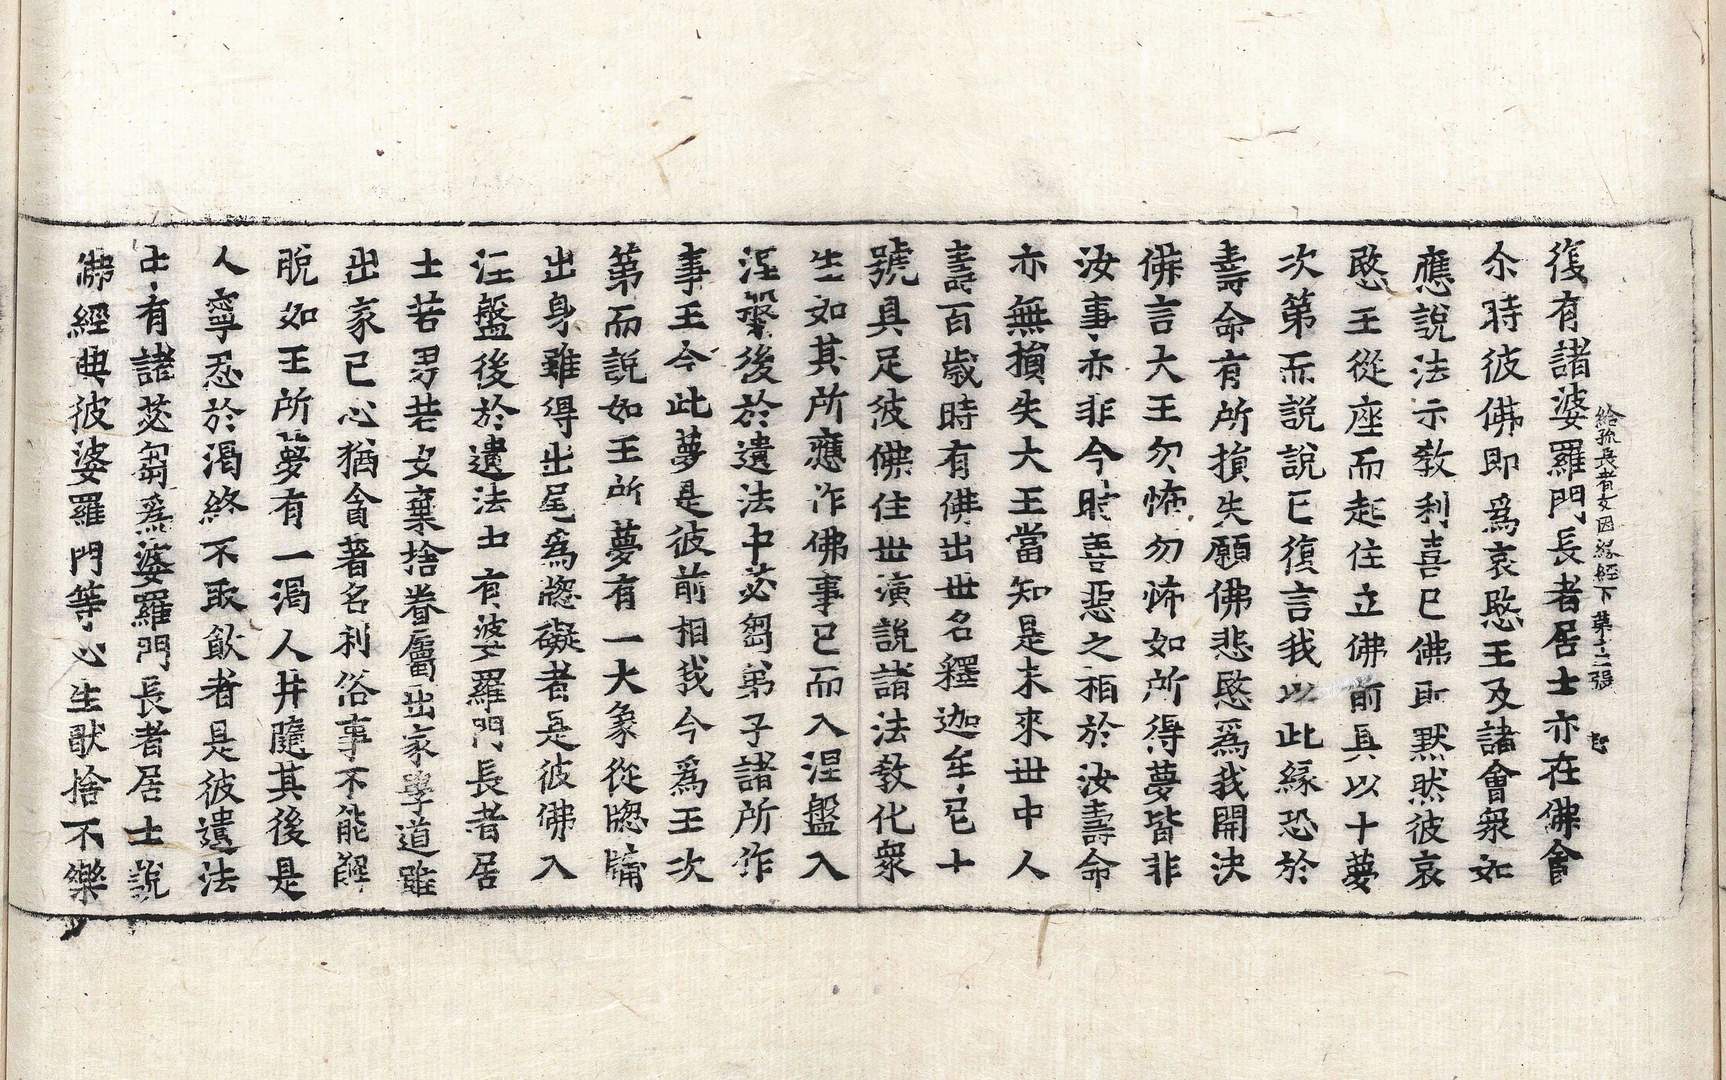 復有諸婆羅門長者居士亦在佛會
給孤長者女因緣經下 第十二張
尒時彼佛即爲哀愍王及諸會衆如
應說法示教利喜已佛即默然彼哀
愍王從座而起住立佛前具以十夢
次第而說說已復言我以此緣恐於
壽命有所損失願佛悲愍爲我開決
佛言大王勿怖勿怖如所得夢皆非
汝事亦非今時善惡之相於汝壽命
亦無損失大王當知是未來世中人
壽百歲時有佛出世名釋迦牟尼十
號具足彼佛住世演說諸法教化衆
生如其所應作佛事已而入涅盤入
涅槃後於遺法中苾芻弟子諸所作
事王今此夢是彼前相我今爲王次
第而說如王所夢有一大象從牎牗
出身雖得出尾爲牎礙者是彼佛入
涅盤後於遺法中有婆羅門長者居
士若男若女棄捨眷屬出家學道雖
出家已心猶貪著名利俗事不能解
脫如王所夢有一渴人井隨其後是
人寧忍於渴終不取飲者是彼遺法
中有諸苾芻爲婆羅門長者居士說
佛經典彼婆羅門等心生猒捨不樂